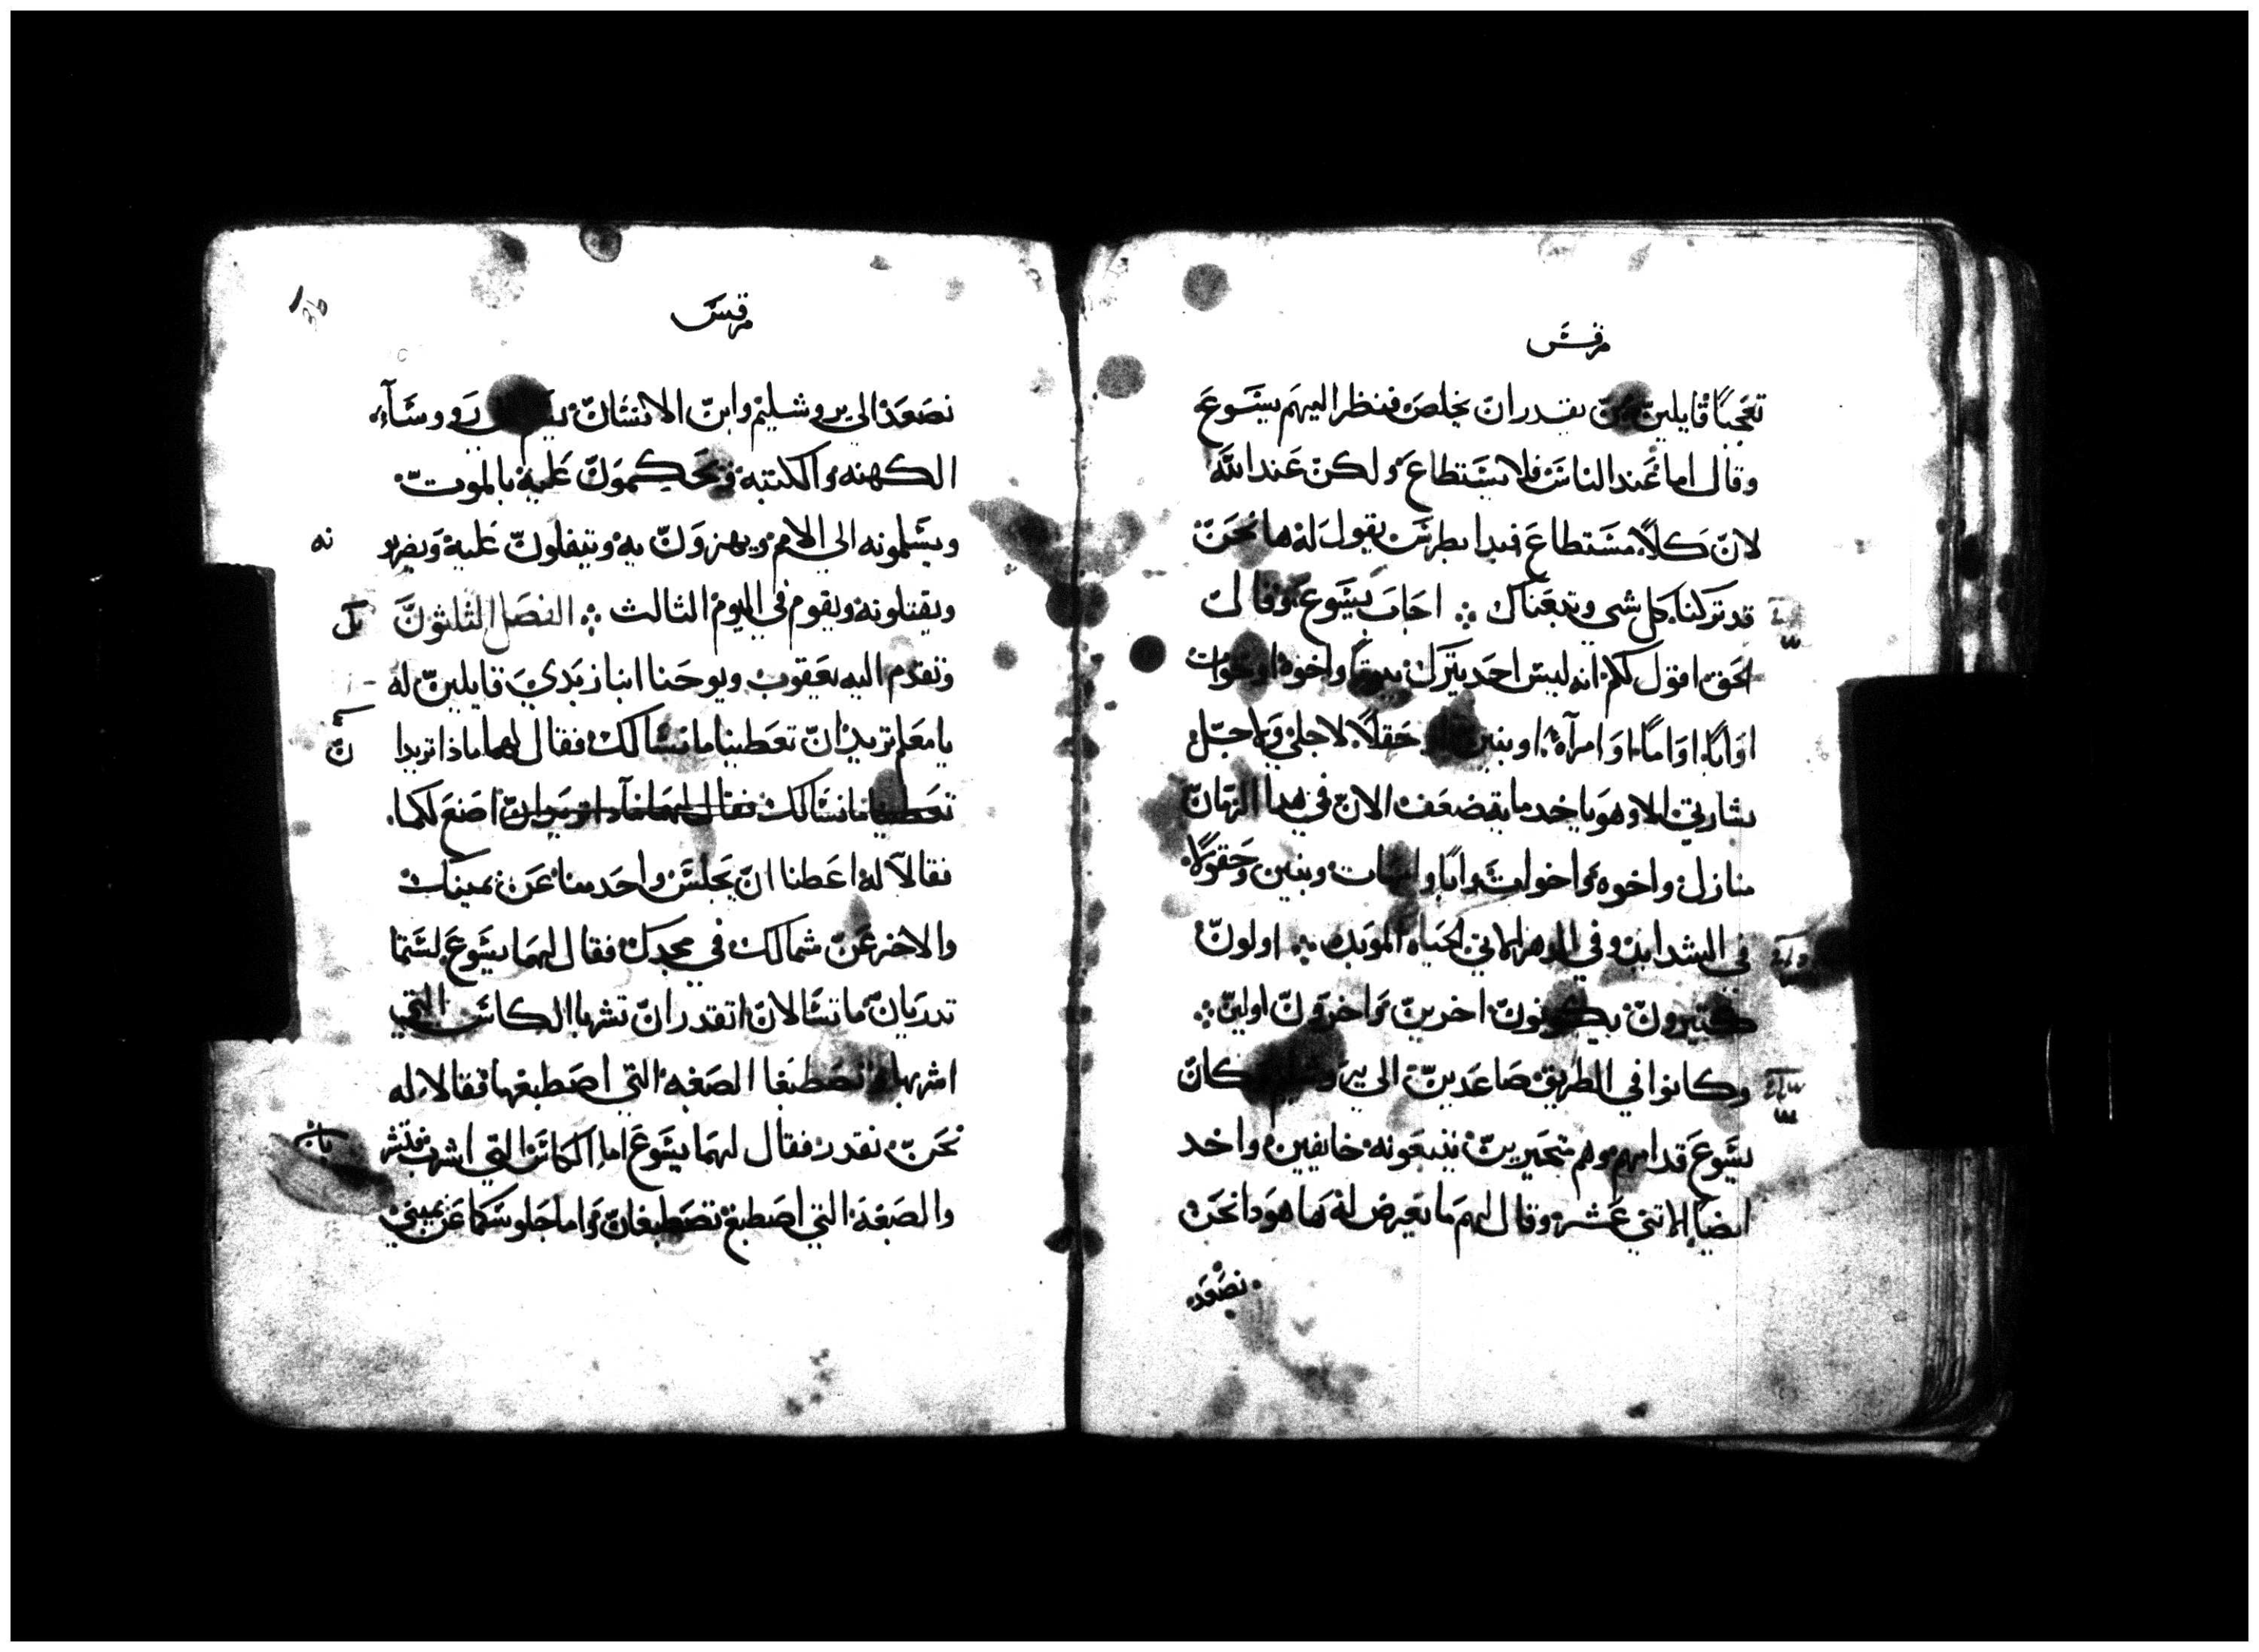 مرقس
تعجبًا قايلين من يقدر ان يخلص فنظر اليهم يسوع
وقال اما عند الناس فلا يستطاع ولكن عند الله
لان كلاً مستطاع فبدا بطرس يقول له ها نحن
قد تركنا كل شي وتبعناك ܀ اجاب يسوع وقال
الحق اقول لكم انه ليس احد يترك بيتًا واخوه او اخوات
او ابًا او امًا او امرآه او بنين حقلاً لاجلي ولاجل
بشارتي الا وهو ياخد مايه ضعف الان في هدا الزمان
منازل واخوه واخوات وابًا وامهات وبنين وحقولاً
في الشدايد وفي الدهر الاتي الحياه الموبده ܀ اولون
كتيرون يكونون اخرين واخرون اولين ܀
وكانوا في الطريق صاعدين الى يروشليم وكان
يسوع قدامهم وهم متحيرين يتبعونه خايفين واخد
ايضًا الاتني عشر وقال لهم ما يعرض له ها هودا نحن
نصعد
مرقس
نصعد الي يروشليم وابن الانسان روسآء
الكهنه والكتبه فيحكمون عليه بالموت
ويسلمونه الي الامم ويهزون به ويتفلون عليه ويضربو
نه
ويقتلونه ويقوم في اليوم الثالث ܀ الفصل الثلثون
وتقدم اليه يعقوب ويوحنا ابنا زبدي قايلين له
يا معلم نريد ان تعطينا ما نسالك فقال لهما ماذا تريدا
ن
تعطينا ما نسالك فقال لهما ماذا تريدان اصنع لكما
فقالا له اعطنا ان يجلس واحد منا عن يمينك
والاخر عن شمالك في مجدك فقال لهما يسوع لستما
تدريان ما تسالان اتقدران تشربا الكاس التي
اشربها وتصطبغا الصبغه التي اصطبغها فقالا له
نحن نقدر فقال لهما يسوع اما الكاس التي اشرب فتشر
بان
والصبغة التي اصطبغ تصطبغان واما جلوسكما عن يميني